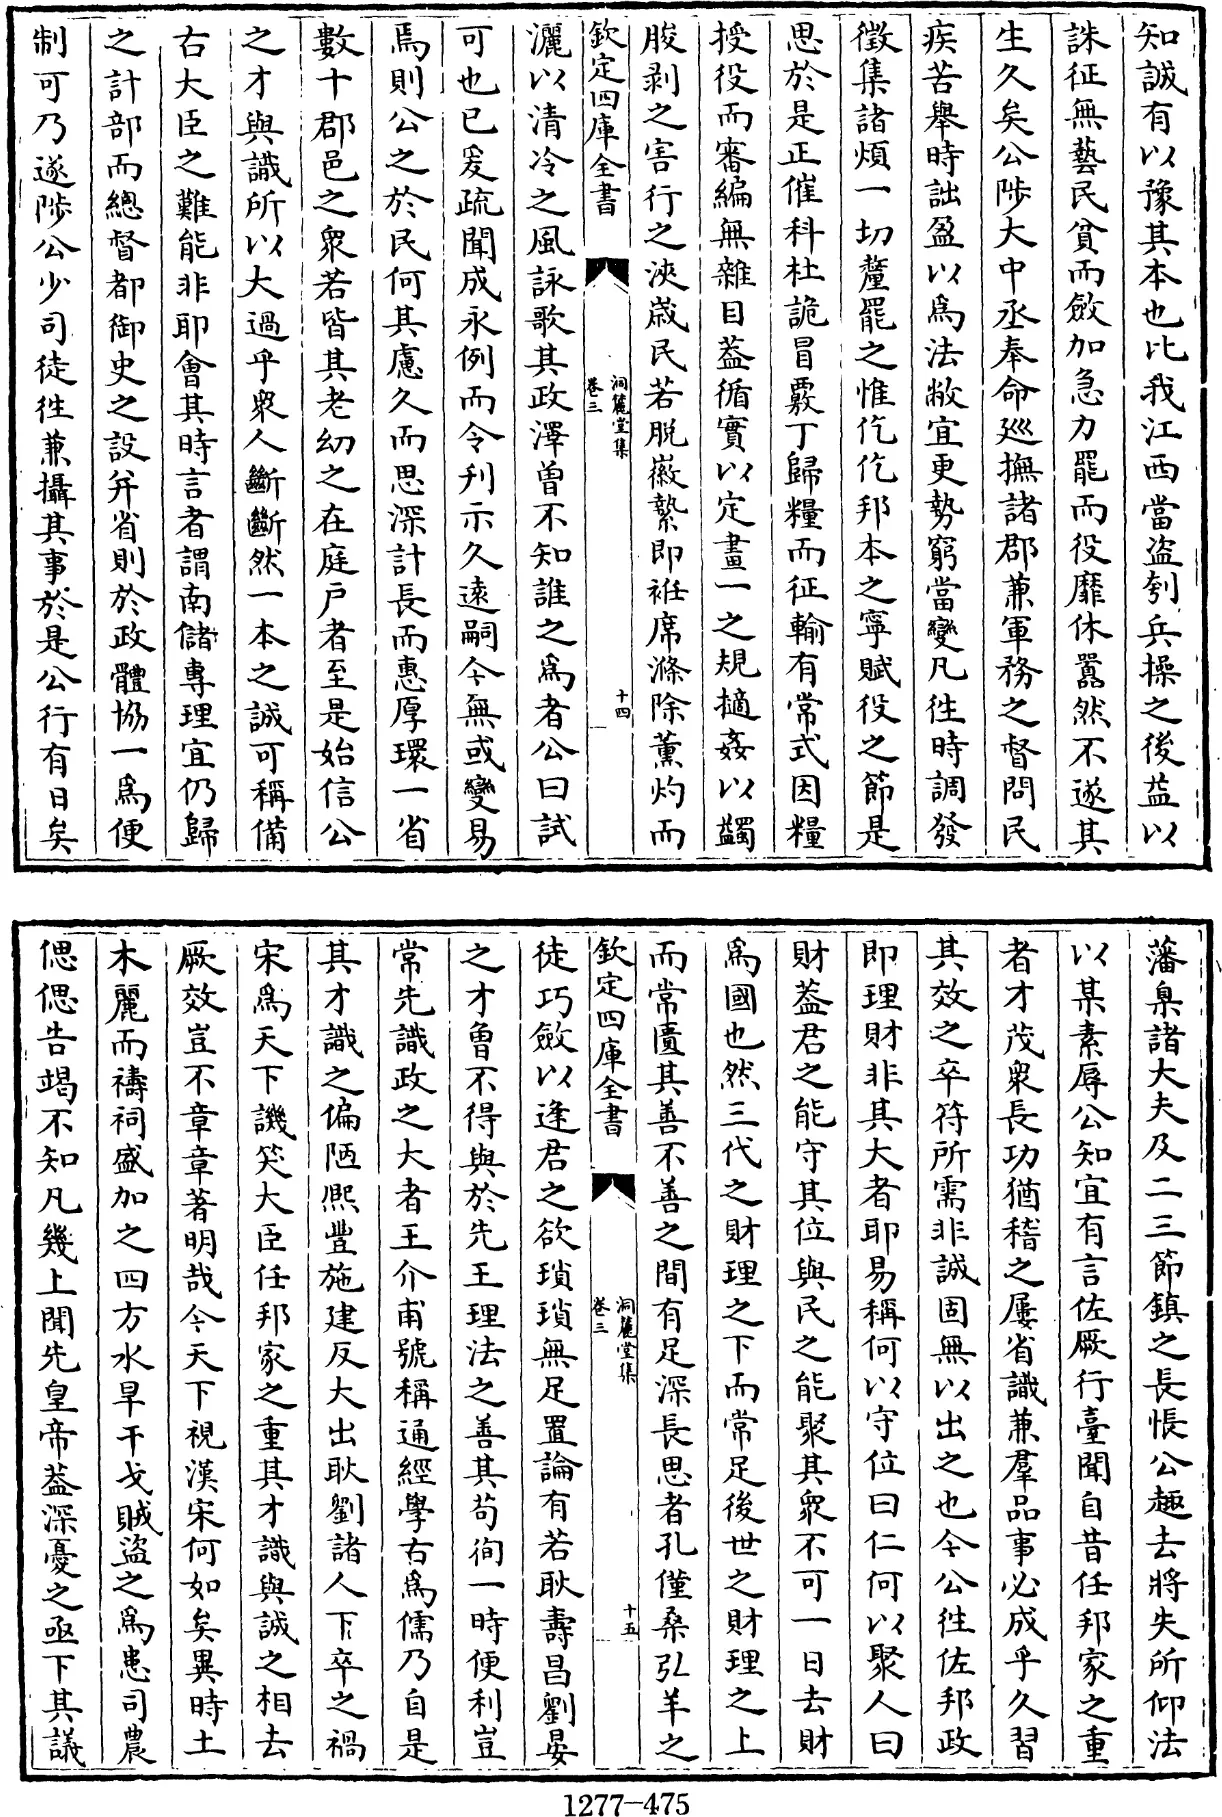 知誠有以豫其本也比我江西當盜刳兵操之後益以
誅征無藝民貧而斂加急力罷而役靡休嚚然不遂其
生久矣公陟大中丞奉命廵撫諸郡兼軍務之督問民
疾苦舉時詘盈以為法敝宜更勢窮當變凡徃時調發
徵集諸煩一切釐罷之惟仡仡邦本之寧賦役之節是
思於是正催科杜詭冒覈丁歸糧而征輸有常式因糧
授役而審編無雜目葢循實以定畫一之規擿姦以蠲
朘剥之害行之浹嵗民若脱嶶縶即袵席滌除薰灼而
欽定四庫全書
洞麓堂集
卷三
十四
灑以清冷之風詠歌其政澤曽不知誰之為者公曰試
可也已爰疏聞成永例而令刋示久遠嗣今無或變易
焉則公之於民何其慮久而思深計長而惠厚環一省
數十郡邑之衆若皆其老幼之在庭户者至是始信公
之才與識所以大過乎衆人斷斷然一本之誠可稱備
右大臣之難能非耶會其時言者謂南儲專理宜仍歸
之計部而總督都御史之設并省則於政體協一為便
制可乃遂陟公少司徒徃兼攝其事於是公行有日矣
藩臬諸大夫及二三節鎮之長悵公趣去將失所仰法
以某素辱公知宜有言佐厥行臺聞自昔任邦家之重
者才茂衆長功猶稽之屢省識兼羣品事必成乎久習
其效之卒符所需非誠固無以出之也今公徃佐邦政
即理財非其大者耶易稱何以守位曰仁何以聚人曰
財葢君之能守其位與民之能聚其衆不可一日去財
為國也然三代之財理之下而常足後世之財理之上
而常匱其善不善之間有足深長思者孔僅桑弘羊之
欽定四庫全書
洞麓堂集
卷三
十五
徒巧斂以逢君之欲瑣瑣無足置論有若耿壽昌劉晏
之才曽不得與於先王理法之善其苟徇一時便利豈
常先識政之大者王介甫號稱通經學古為儒乃自是
其才識之偏陋熙豐施建反大出耿劉諸人下卒之禍
宋為天下譏笑大臣任邦家之重其才識與誠之相去
厥效豈不章章著明哉今天下視漢宋何如矣異時土
木麗而禱祠盛加之四方水旱干戈賊盜之為患司農
偲偲告竭不知凡幾上聞先皇帝葢深憂之亟下其議
1277—475